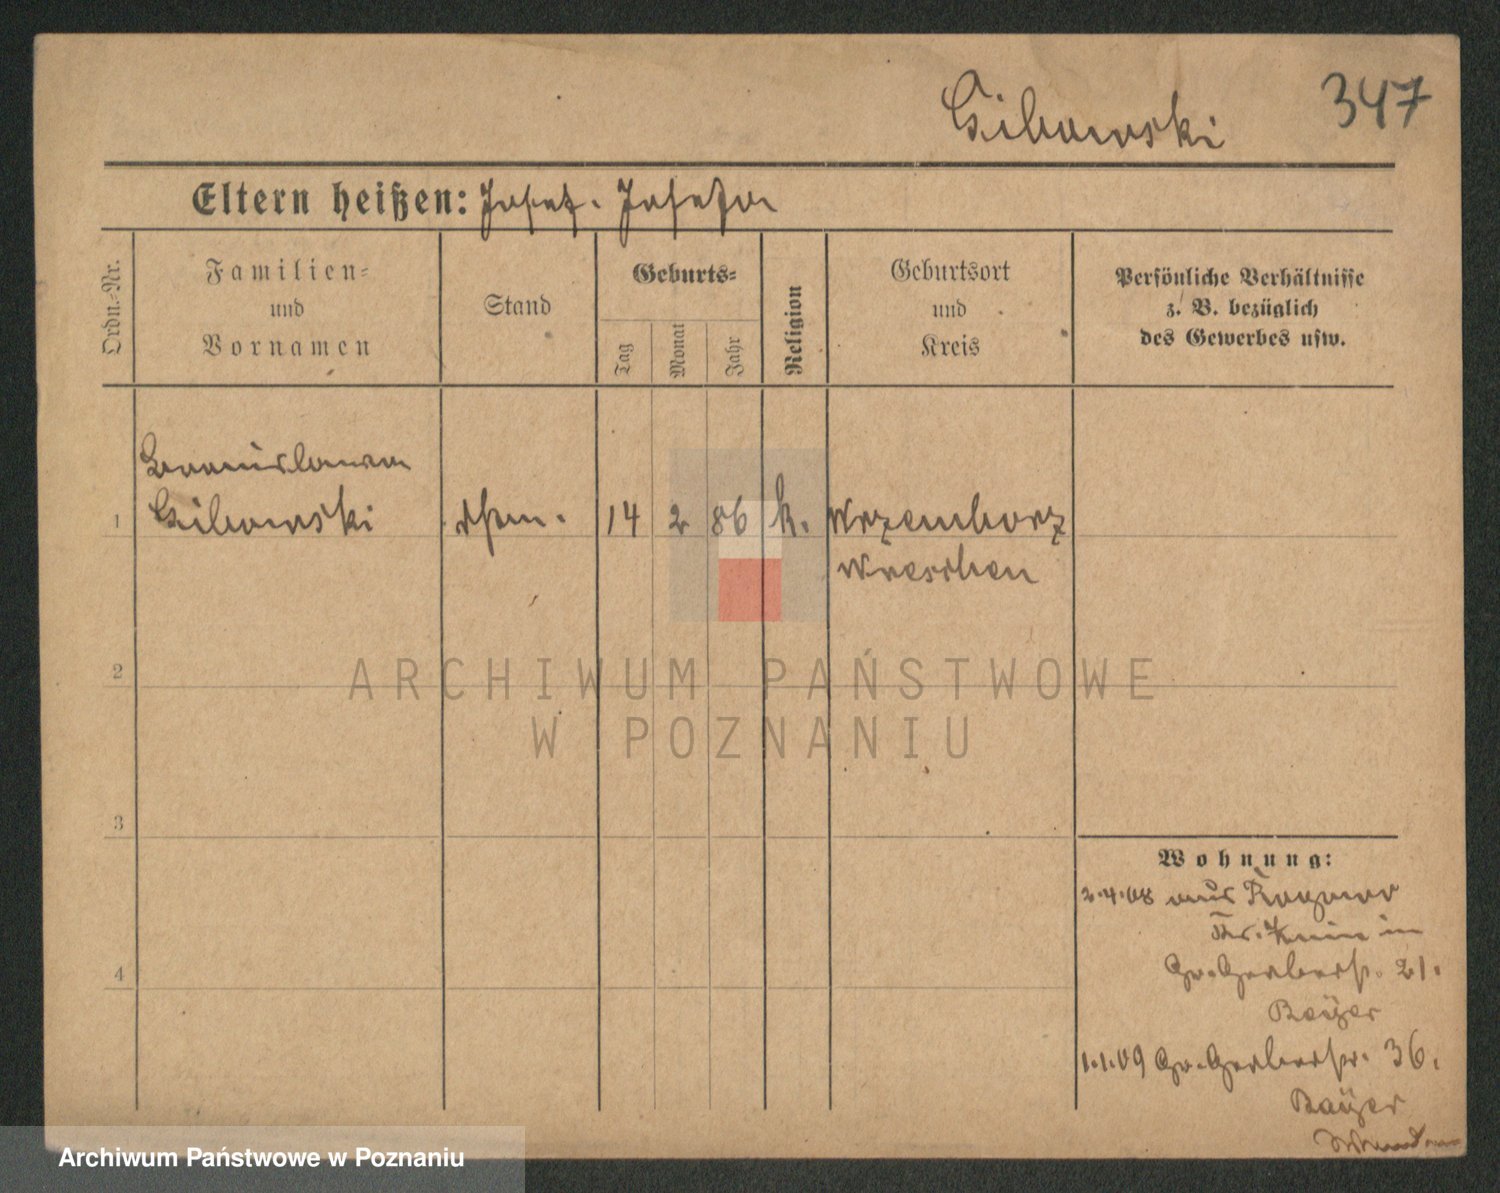 Gibowski 347
Eltern heißen: Josef. Josefa
Ordn.-Nr.
Familien-
und
Vornamen
Stand
Geburts-
Tag
Monat
Jahr
Religion
Geburtsort
und
Kreis
Persönliche Verhältnisse
z. B. bezüglich
des Gewerbes usw.
Bronislawa
1 Gibowski 14 2 86 k. Wrzemborz
Wreschen
2
3
4
Wohnung:
2.4.08 aus
Kr. in
Gr. Gerberstr. 21.
Bayer
1.1.09 Gr. Gerberstr. 36.
Bayer
ARCHIWUM PAŃSTWOWE
W POZNANIU
Archiwum Państwowe w Poznaniu